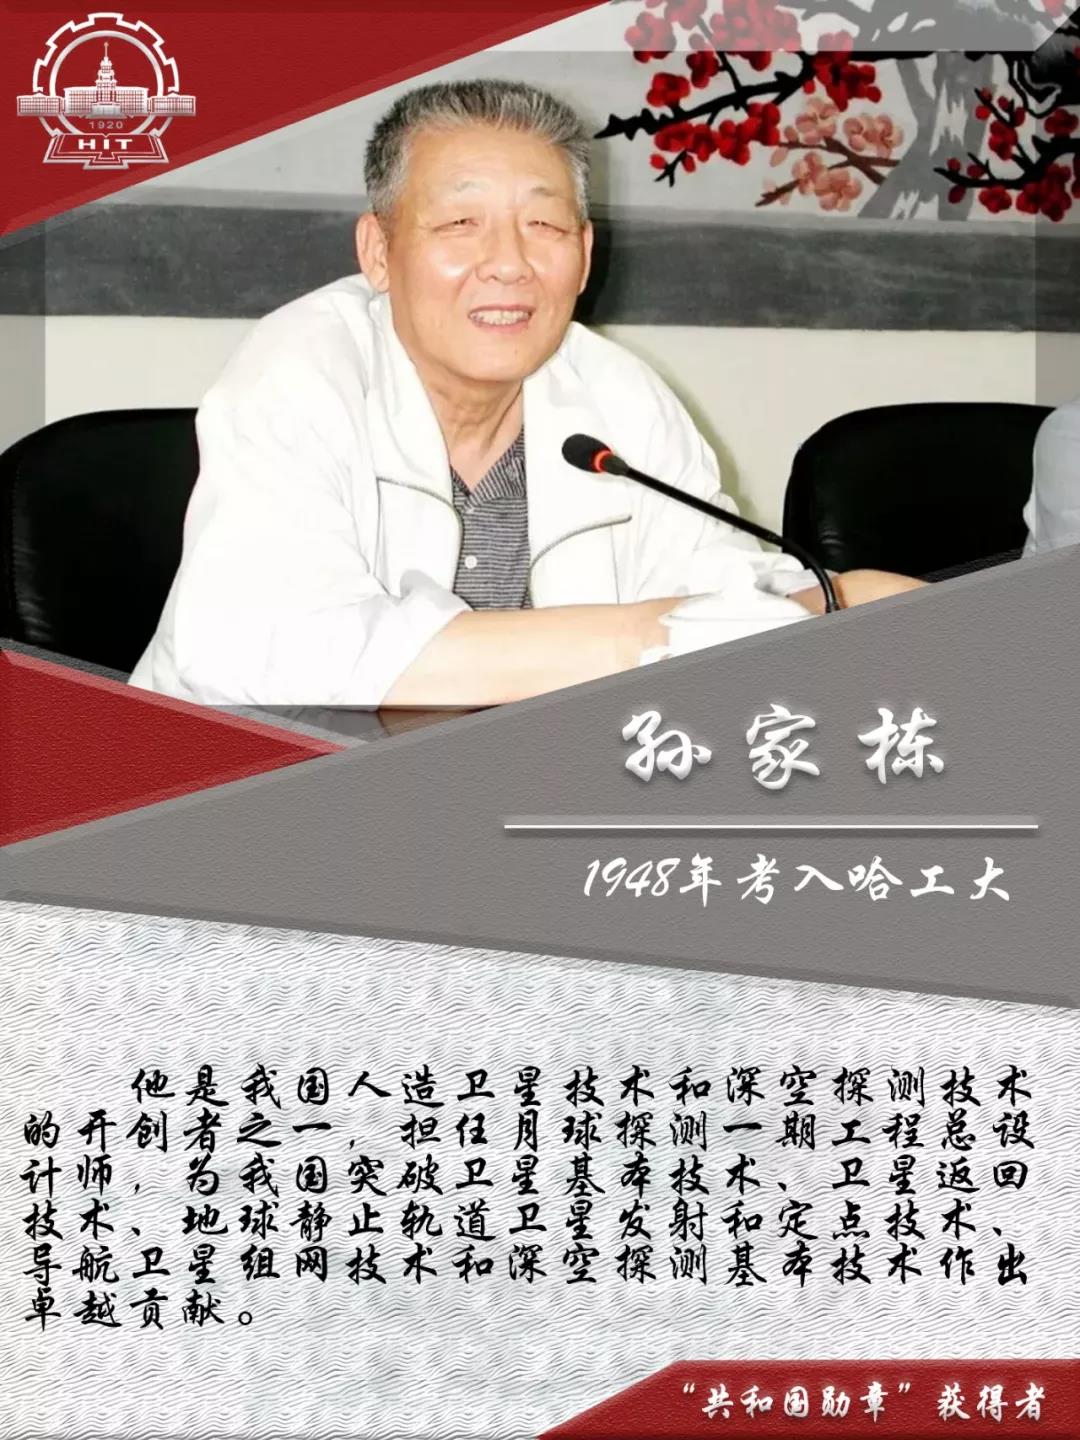 1920
HIT
孙家栋
1948年考入哈工大
他是我国人造卫星技术和深空探测技术
的开创者之一，担任月球探测一期工程总设
计师，为我国突破卫星基本技术、卫星返回
技术、地球静止轨道卫星发射和定点技术、
导航卫星组网技术和深空探测基本技术作出
卓越贡献。
“共和国勋章”获得者